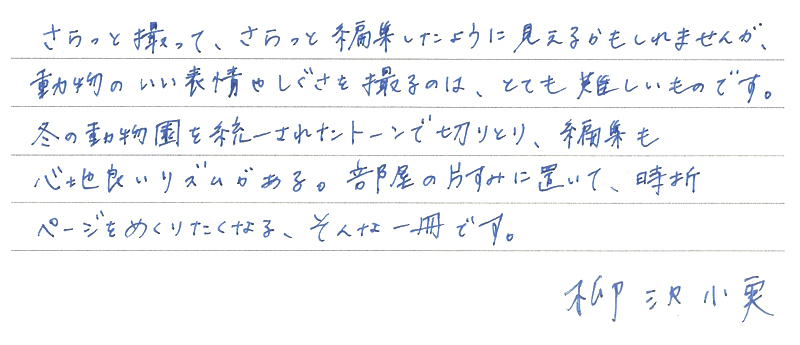 さらっと撮って、さらっと編集したように見えるかもしれませんが、
動物のいい表情やしぐさを撮るのは、とても難しいものです。
冬の動物園を統一されたトーンで切りとり、編集も
心地良いリズムがある。部屋の片すみに置いて、時折
ページをめくりたくなる、そんな一冊です。
柳沢小実